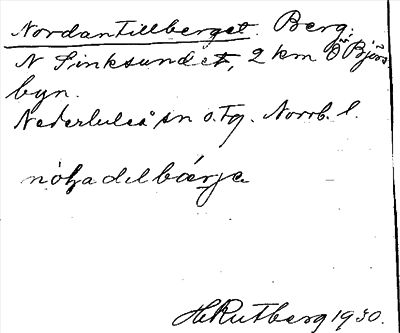 Nordantillberget. Berg.
N Sinksundet, 2 km Ö Björs
byn.
Nederluleå sn o. tg. Norrb. l.
HRutberg 1930.